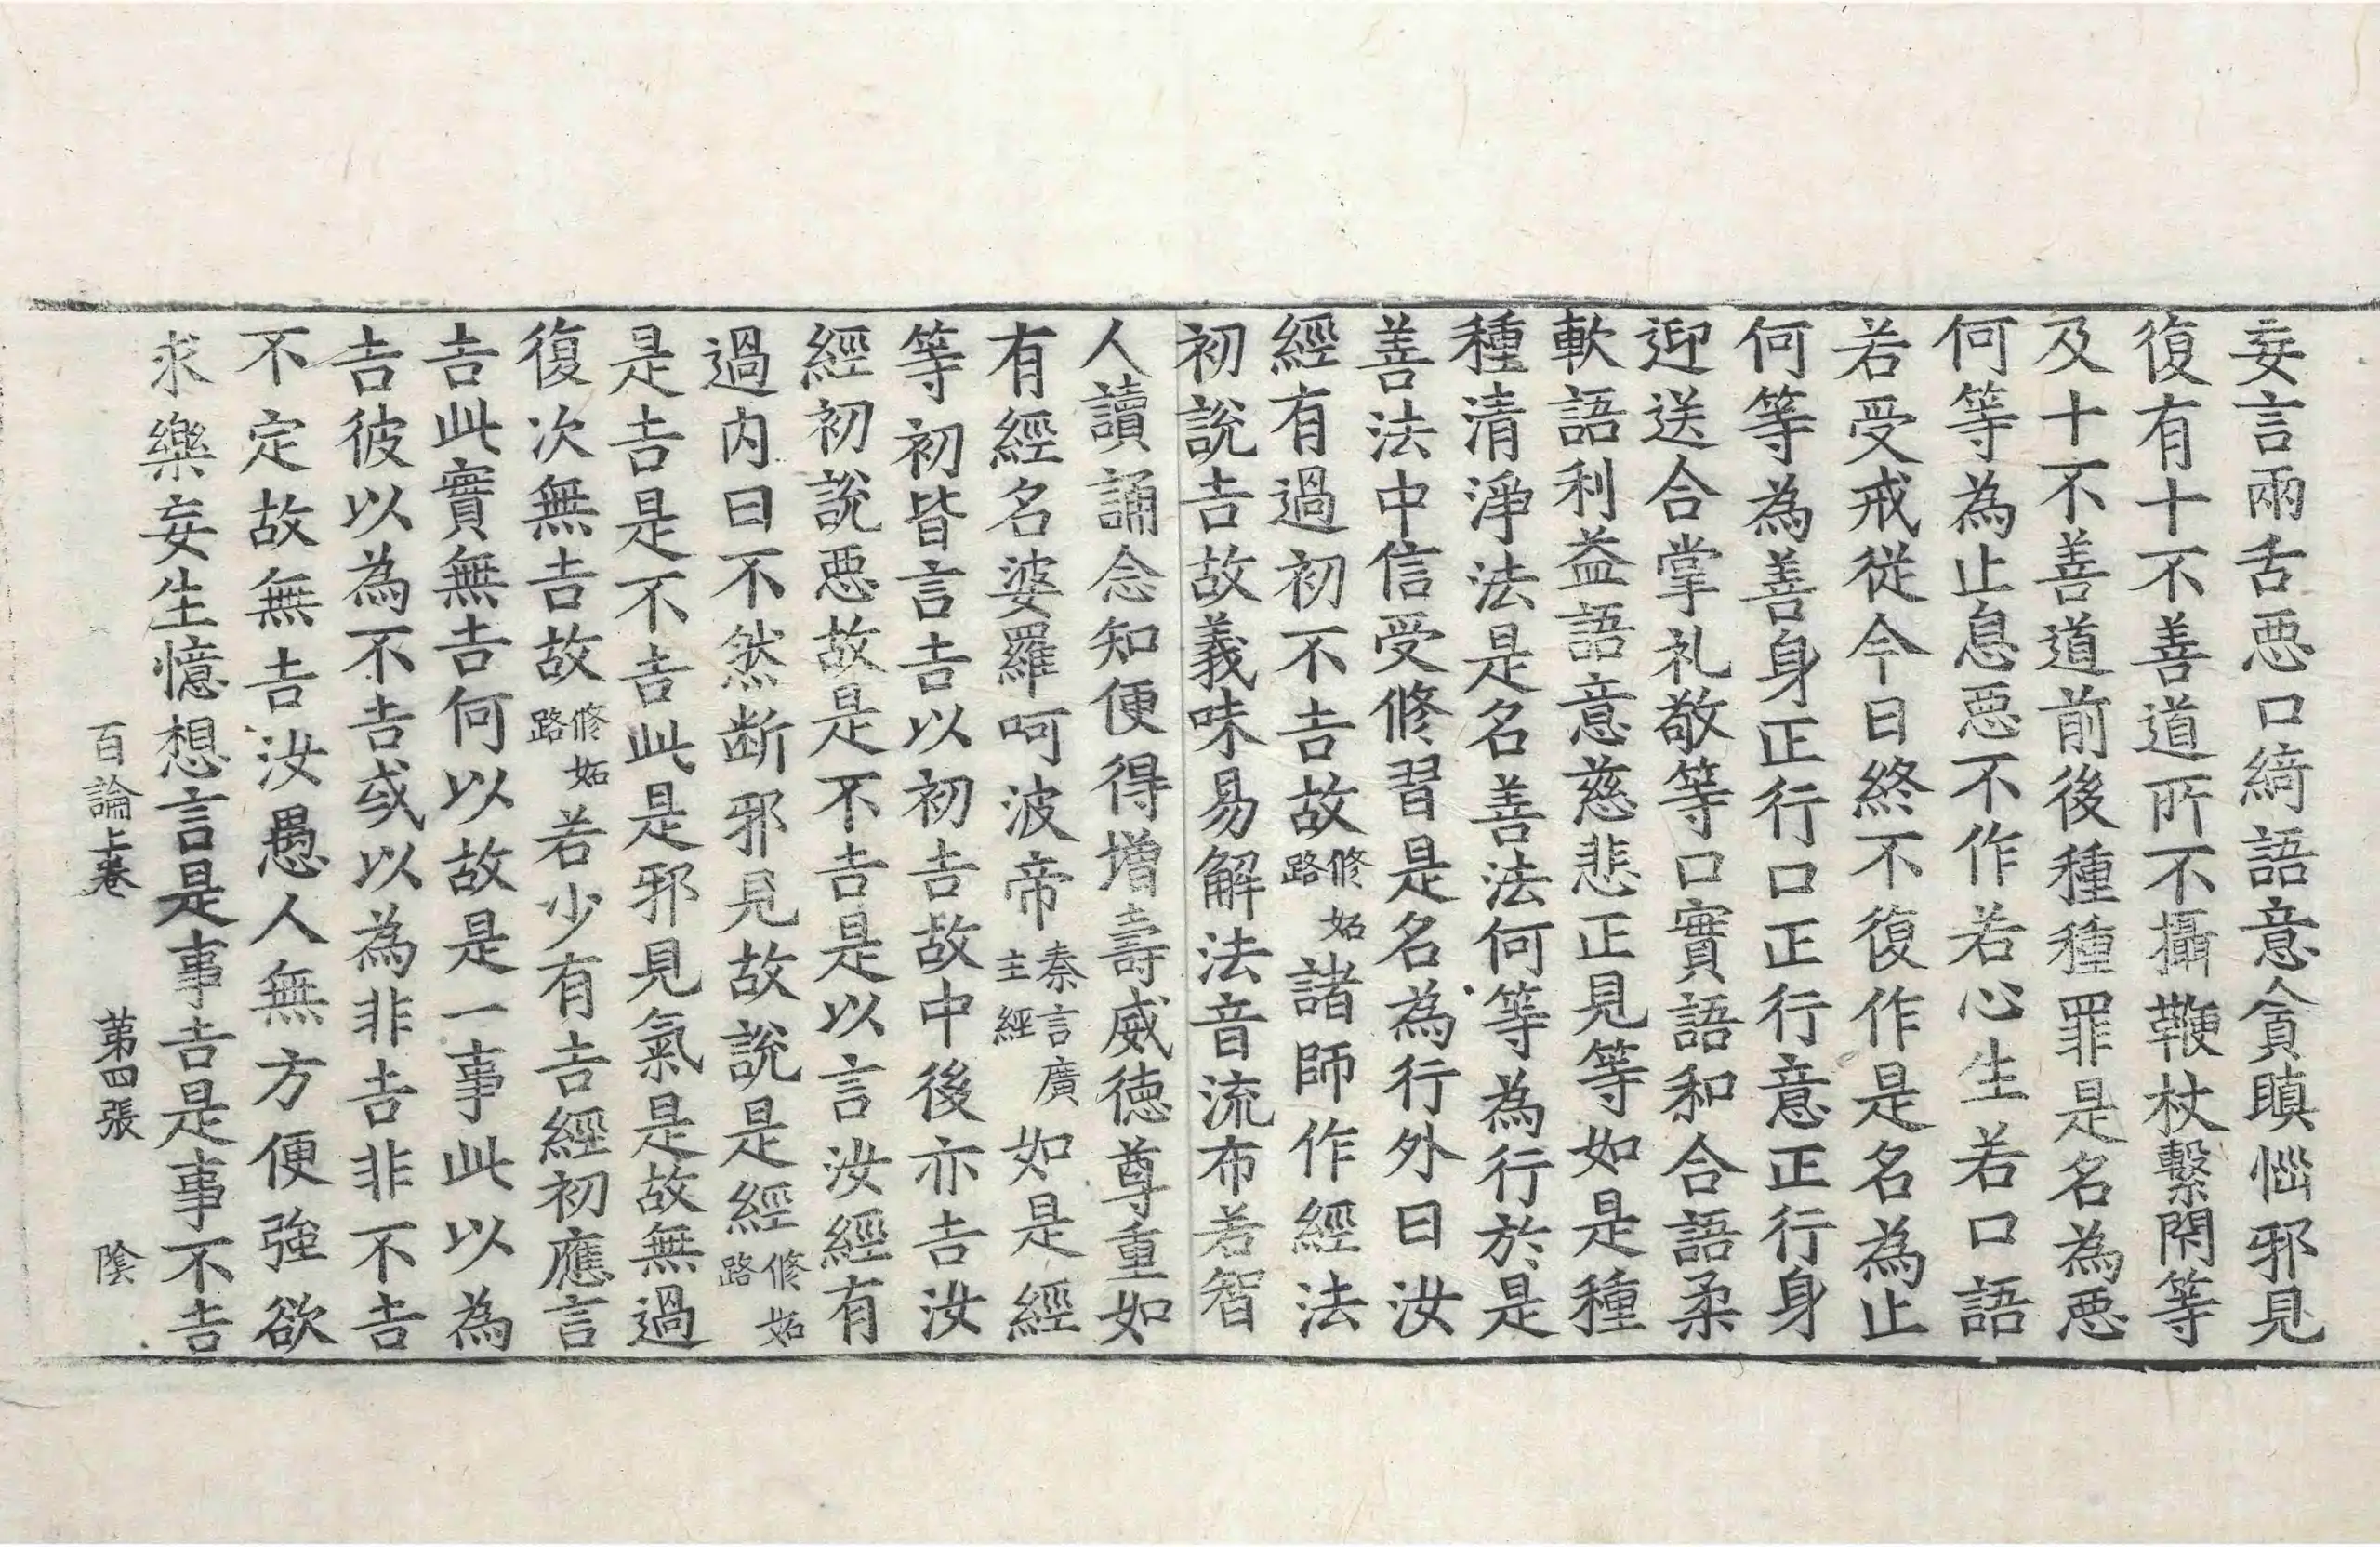 妄言兩舌惡口綺語意貪瞋惱邪見
復有十不善道所不攝鞭杖繫閇等
及十不善道前後種種罪是名為惡
何等為止息惡不作若心生若口語
若受戒從今日終不復作是名為止
何等為善身正行口正行意正行身
迎送合掌礼敬等口實語和合語柔
軟語利益語意慈悲正見等如是種
種清淨法是名善法何等為行於是
善法中信受修習是名為行外曰汝
經有過初不吉故修妬路諸師作經法
初說吉故義味易解法音流布若智
人讀誦念知便得增壽威德尊重如
有經名婆羅呵波帝秦言廣主經如是經
等初皆言吉以初吉故中後亦吉汝
經初說惡故是不吉是以言汝經有
過内曰不然断邪見故說是經修妬路
是吉是不吉此是邪見氣是故無過
復次無吉故修妬路若少有吉經初應言
吉此實無吉何以故是一事此以為
吉彼以為不吉或以為非吉非不吉
不定故無吉汝愚人無方便強欲
求樂妄生憶想言是事吉是事不吉
百論上卷　第四張　陰